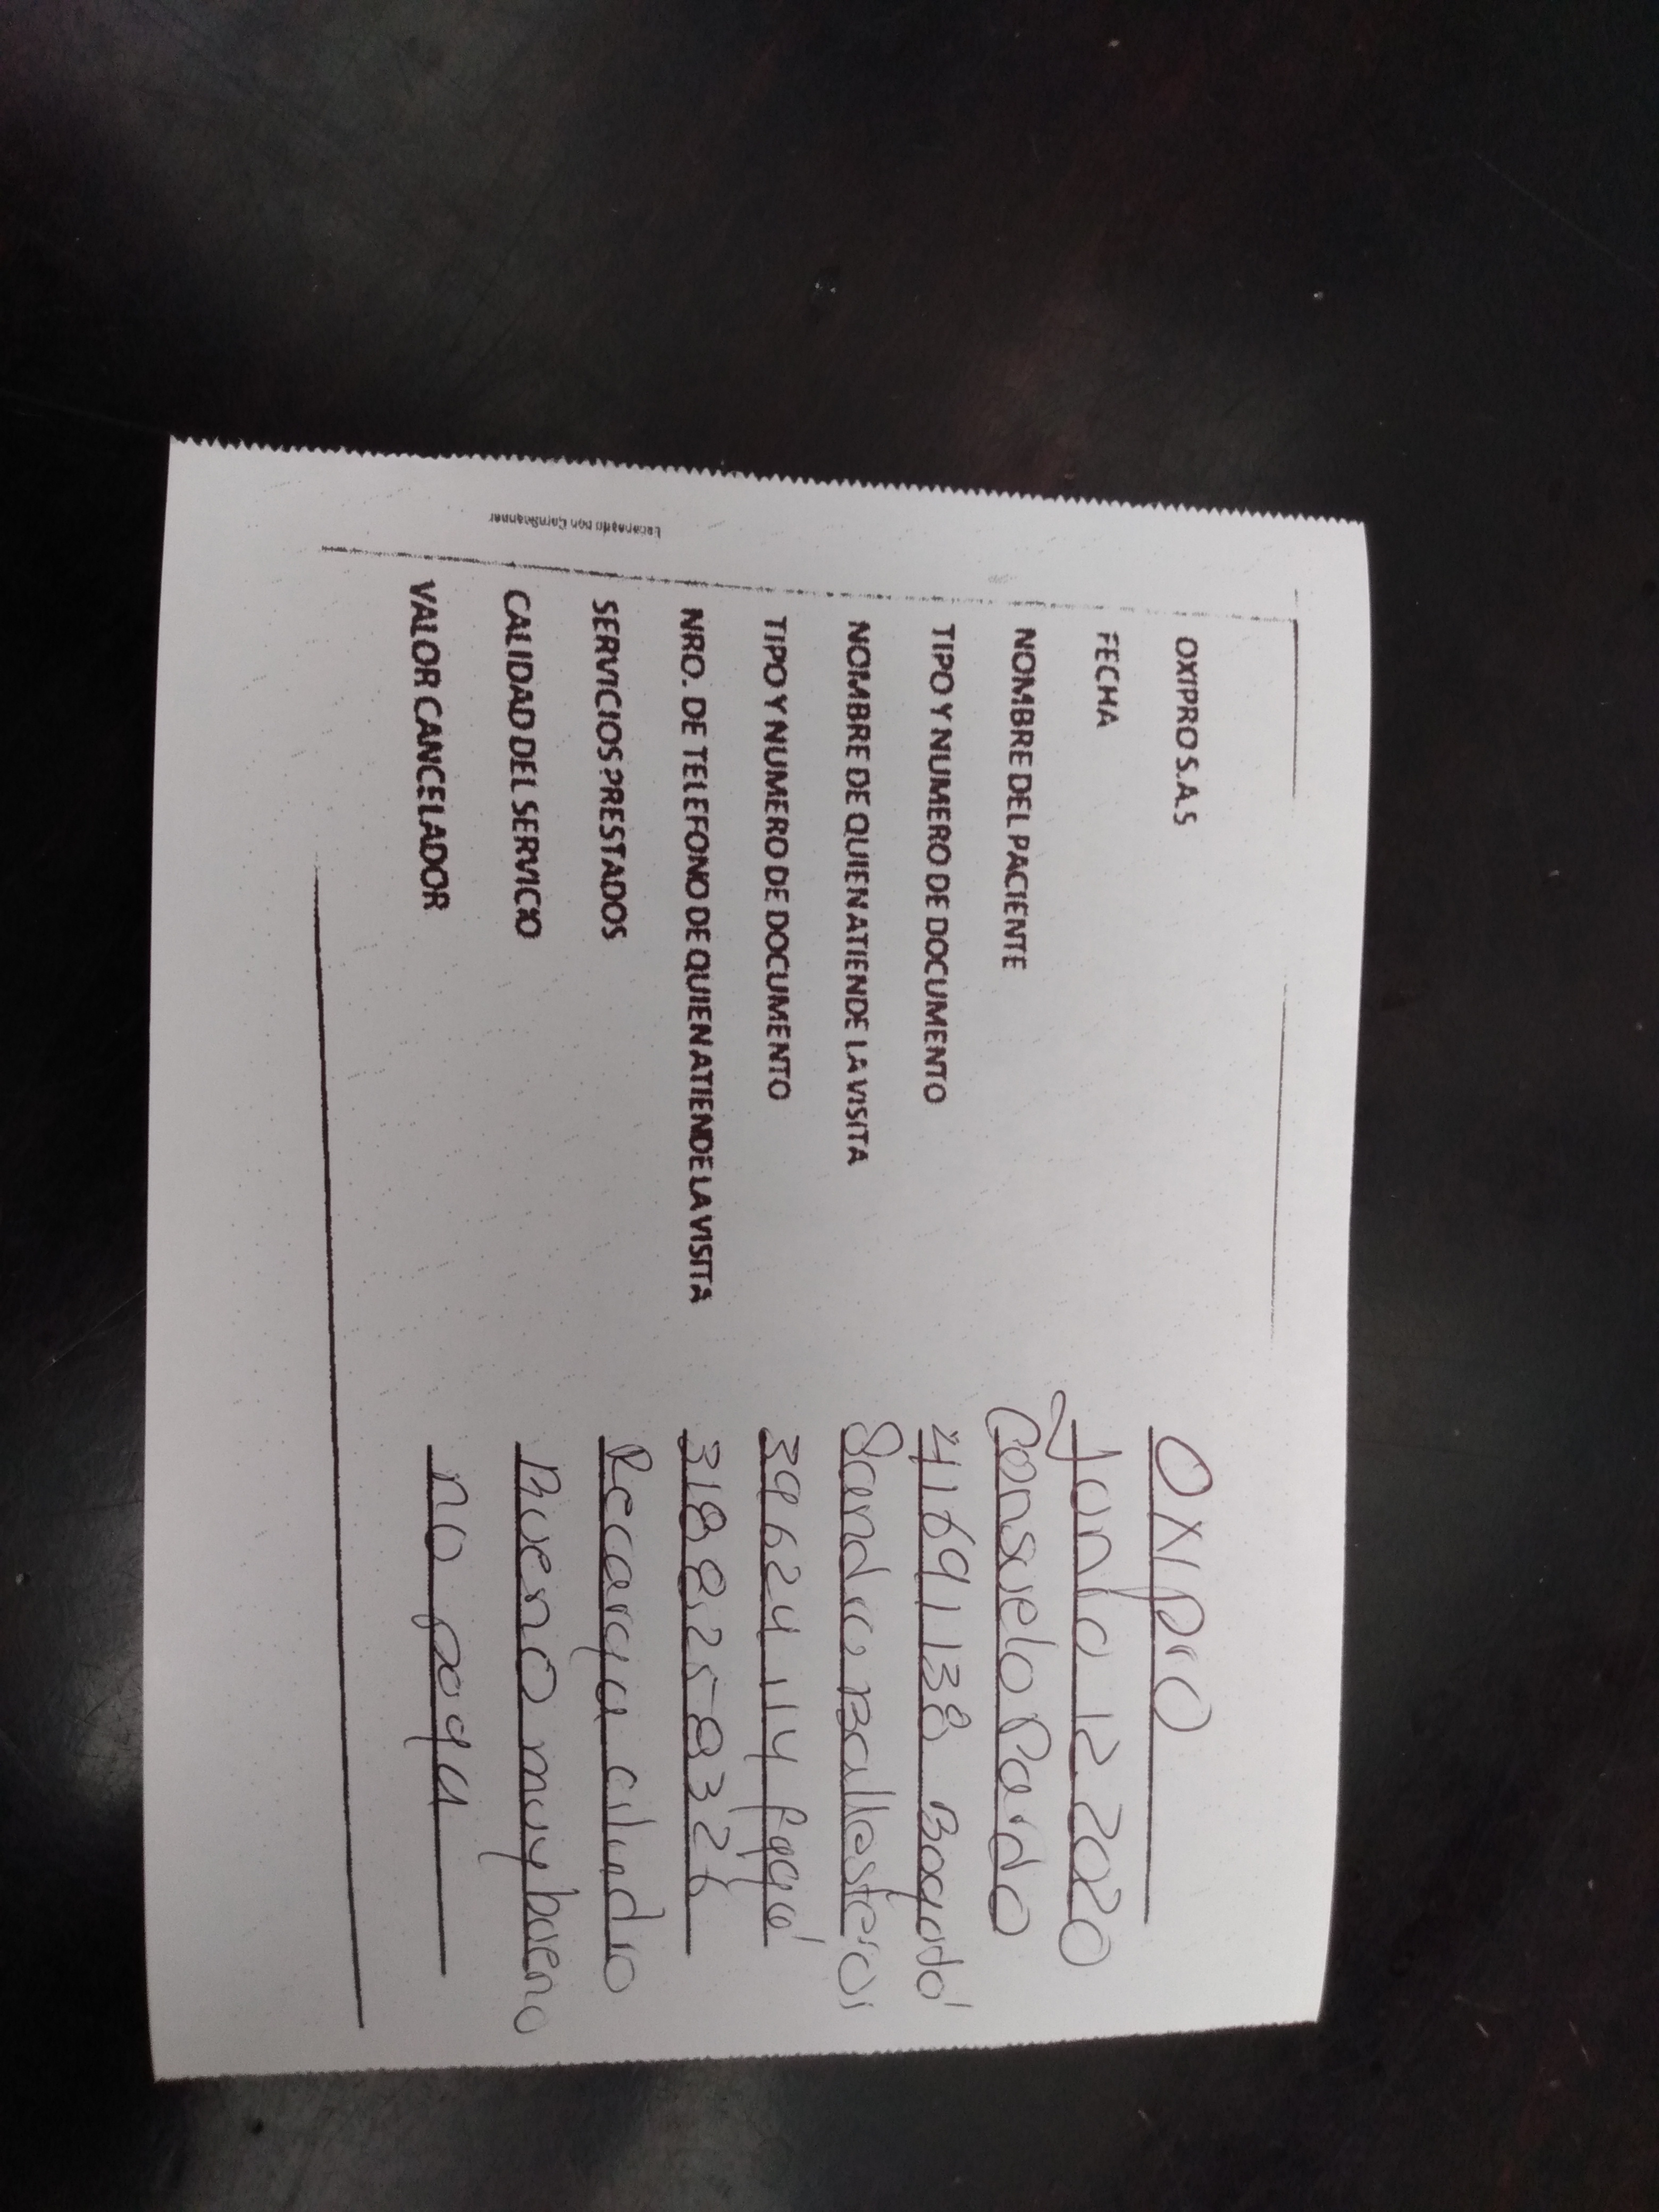 OXIPRO S.A.S OXIPRO
FECHA Junio 12 2020
NOMBRE DEL PACIENTE Consuelo Pardo
TIPO Y NUMERO DE DOCUMENTO 41691138 Bogotá
NOMBRE DE QUIEN ATIENDE LA VISITA Sandra Ballesteros
TIPO Y NUMERO DE DOCUMENTO 39624114
NRO. DE TELEFONO DE QUIEN ATIENDE LA VISITA 3188258326
SERVICIOS PRESTADOS Recarga cilindro
CALIDAD DEL SERVICIO Bueno muy bueno
VALOR CANCELADOR no paga
Escaneado con CamScanner